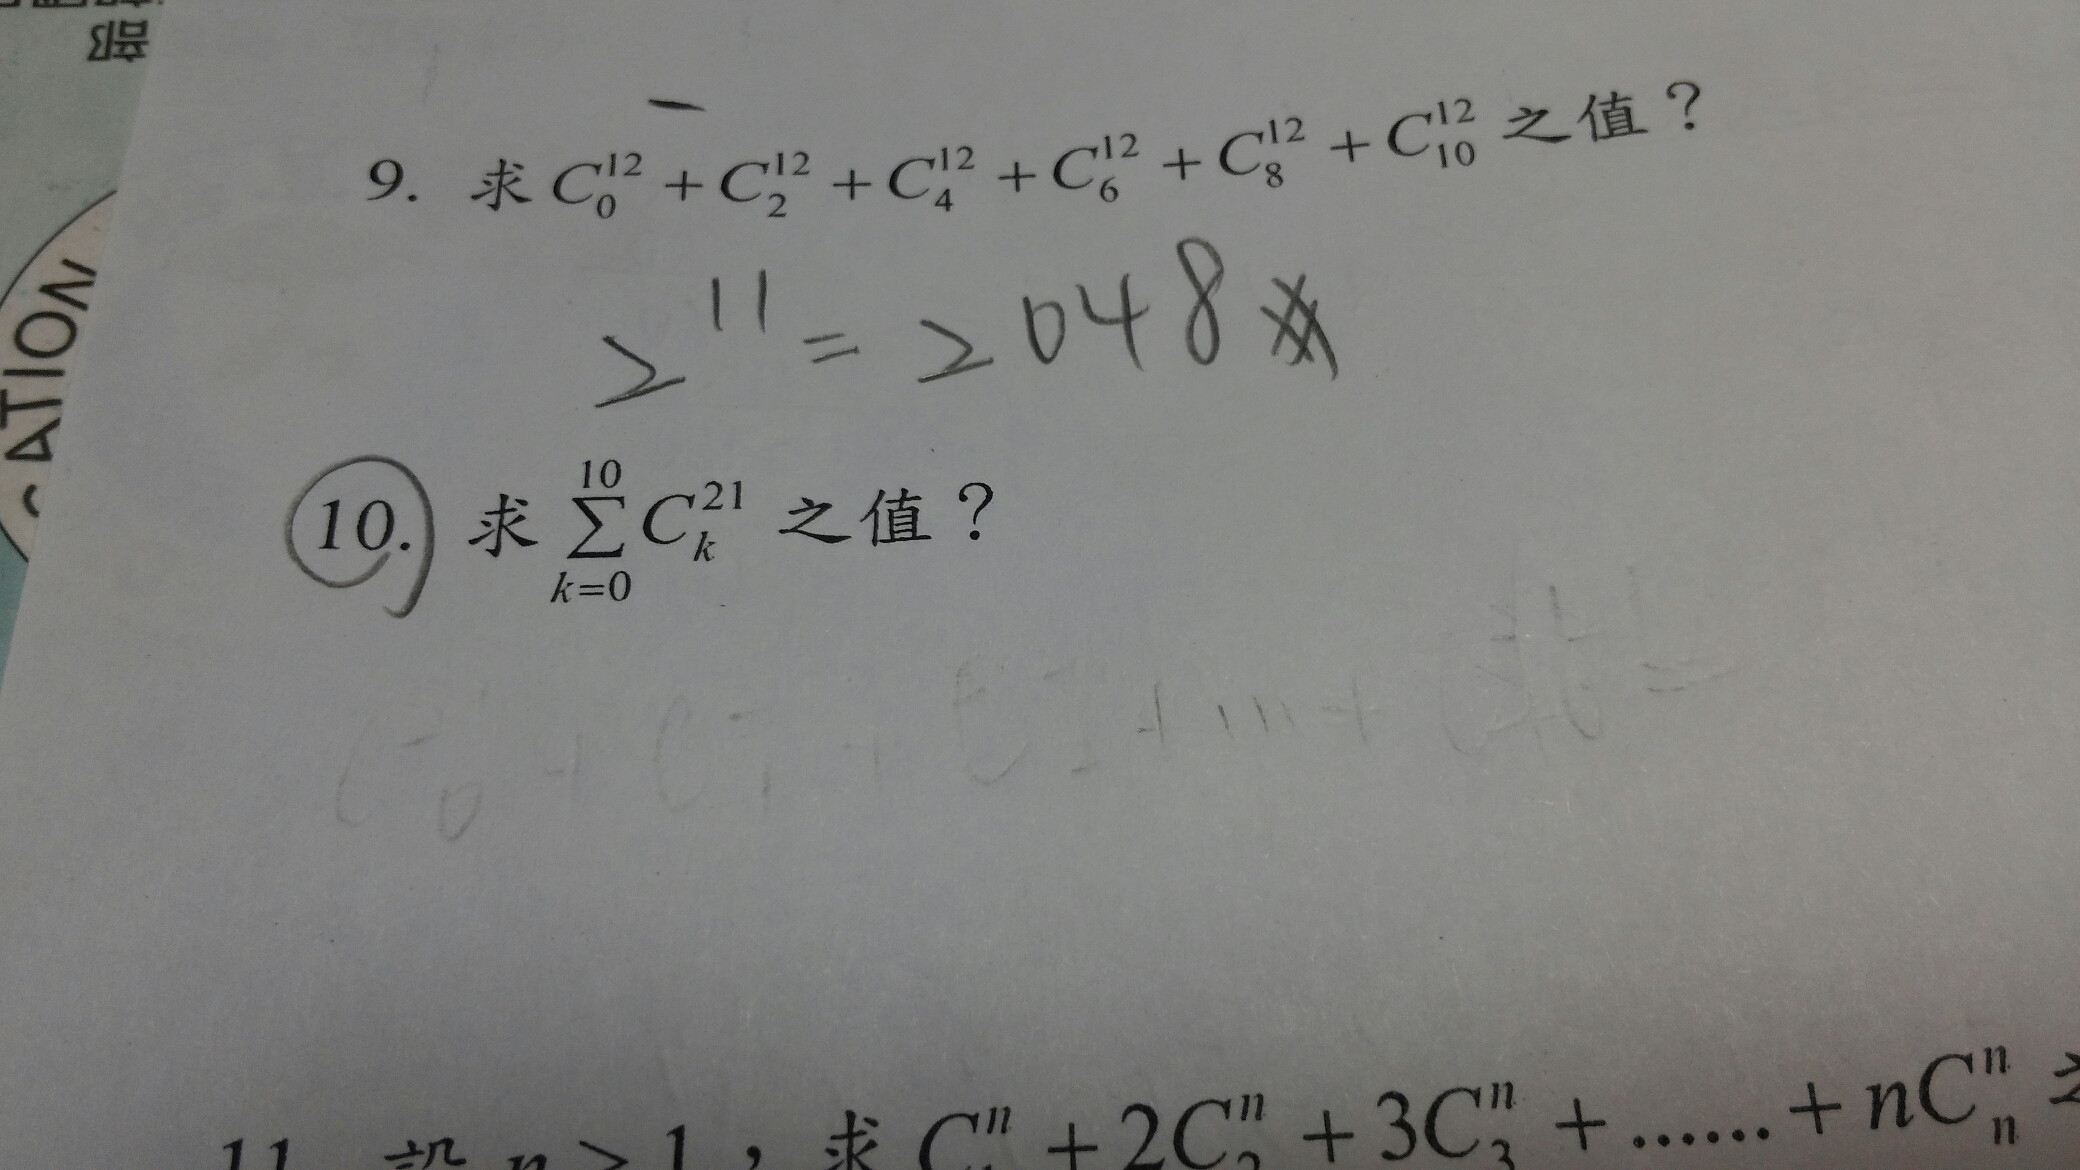 部
CATION
9. 求 C₀¹² + C₂¹² + C₄¹² + C₆¹² + C₈¹² + C₁₀¹² 之值？
2¹¹ = 2048
10. 求 ∑ₖ₌₀¹⁰ Cₖ²¹ 之值？
11. 設 n > 1，求 C₁ⁿ + 2C₂ⁿ + 3C₃ⁿ + ...... + nCₙⁿ 之